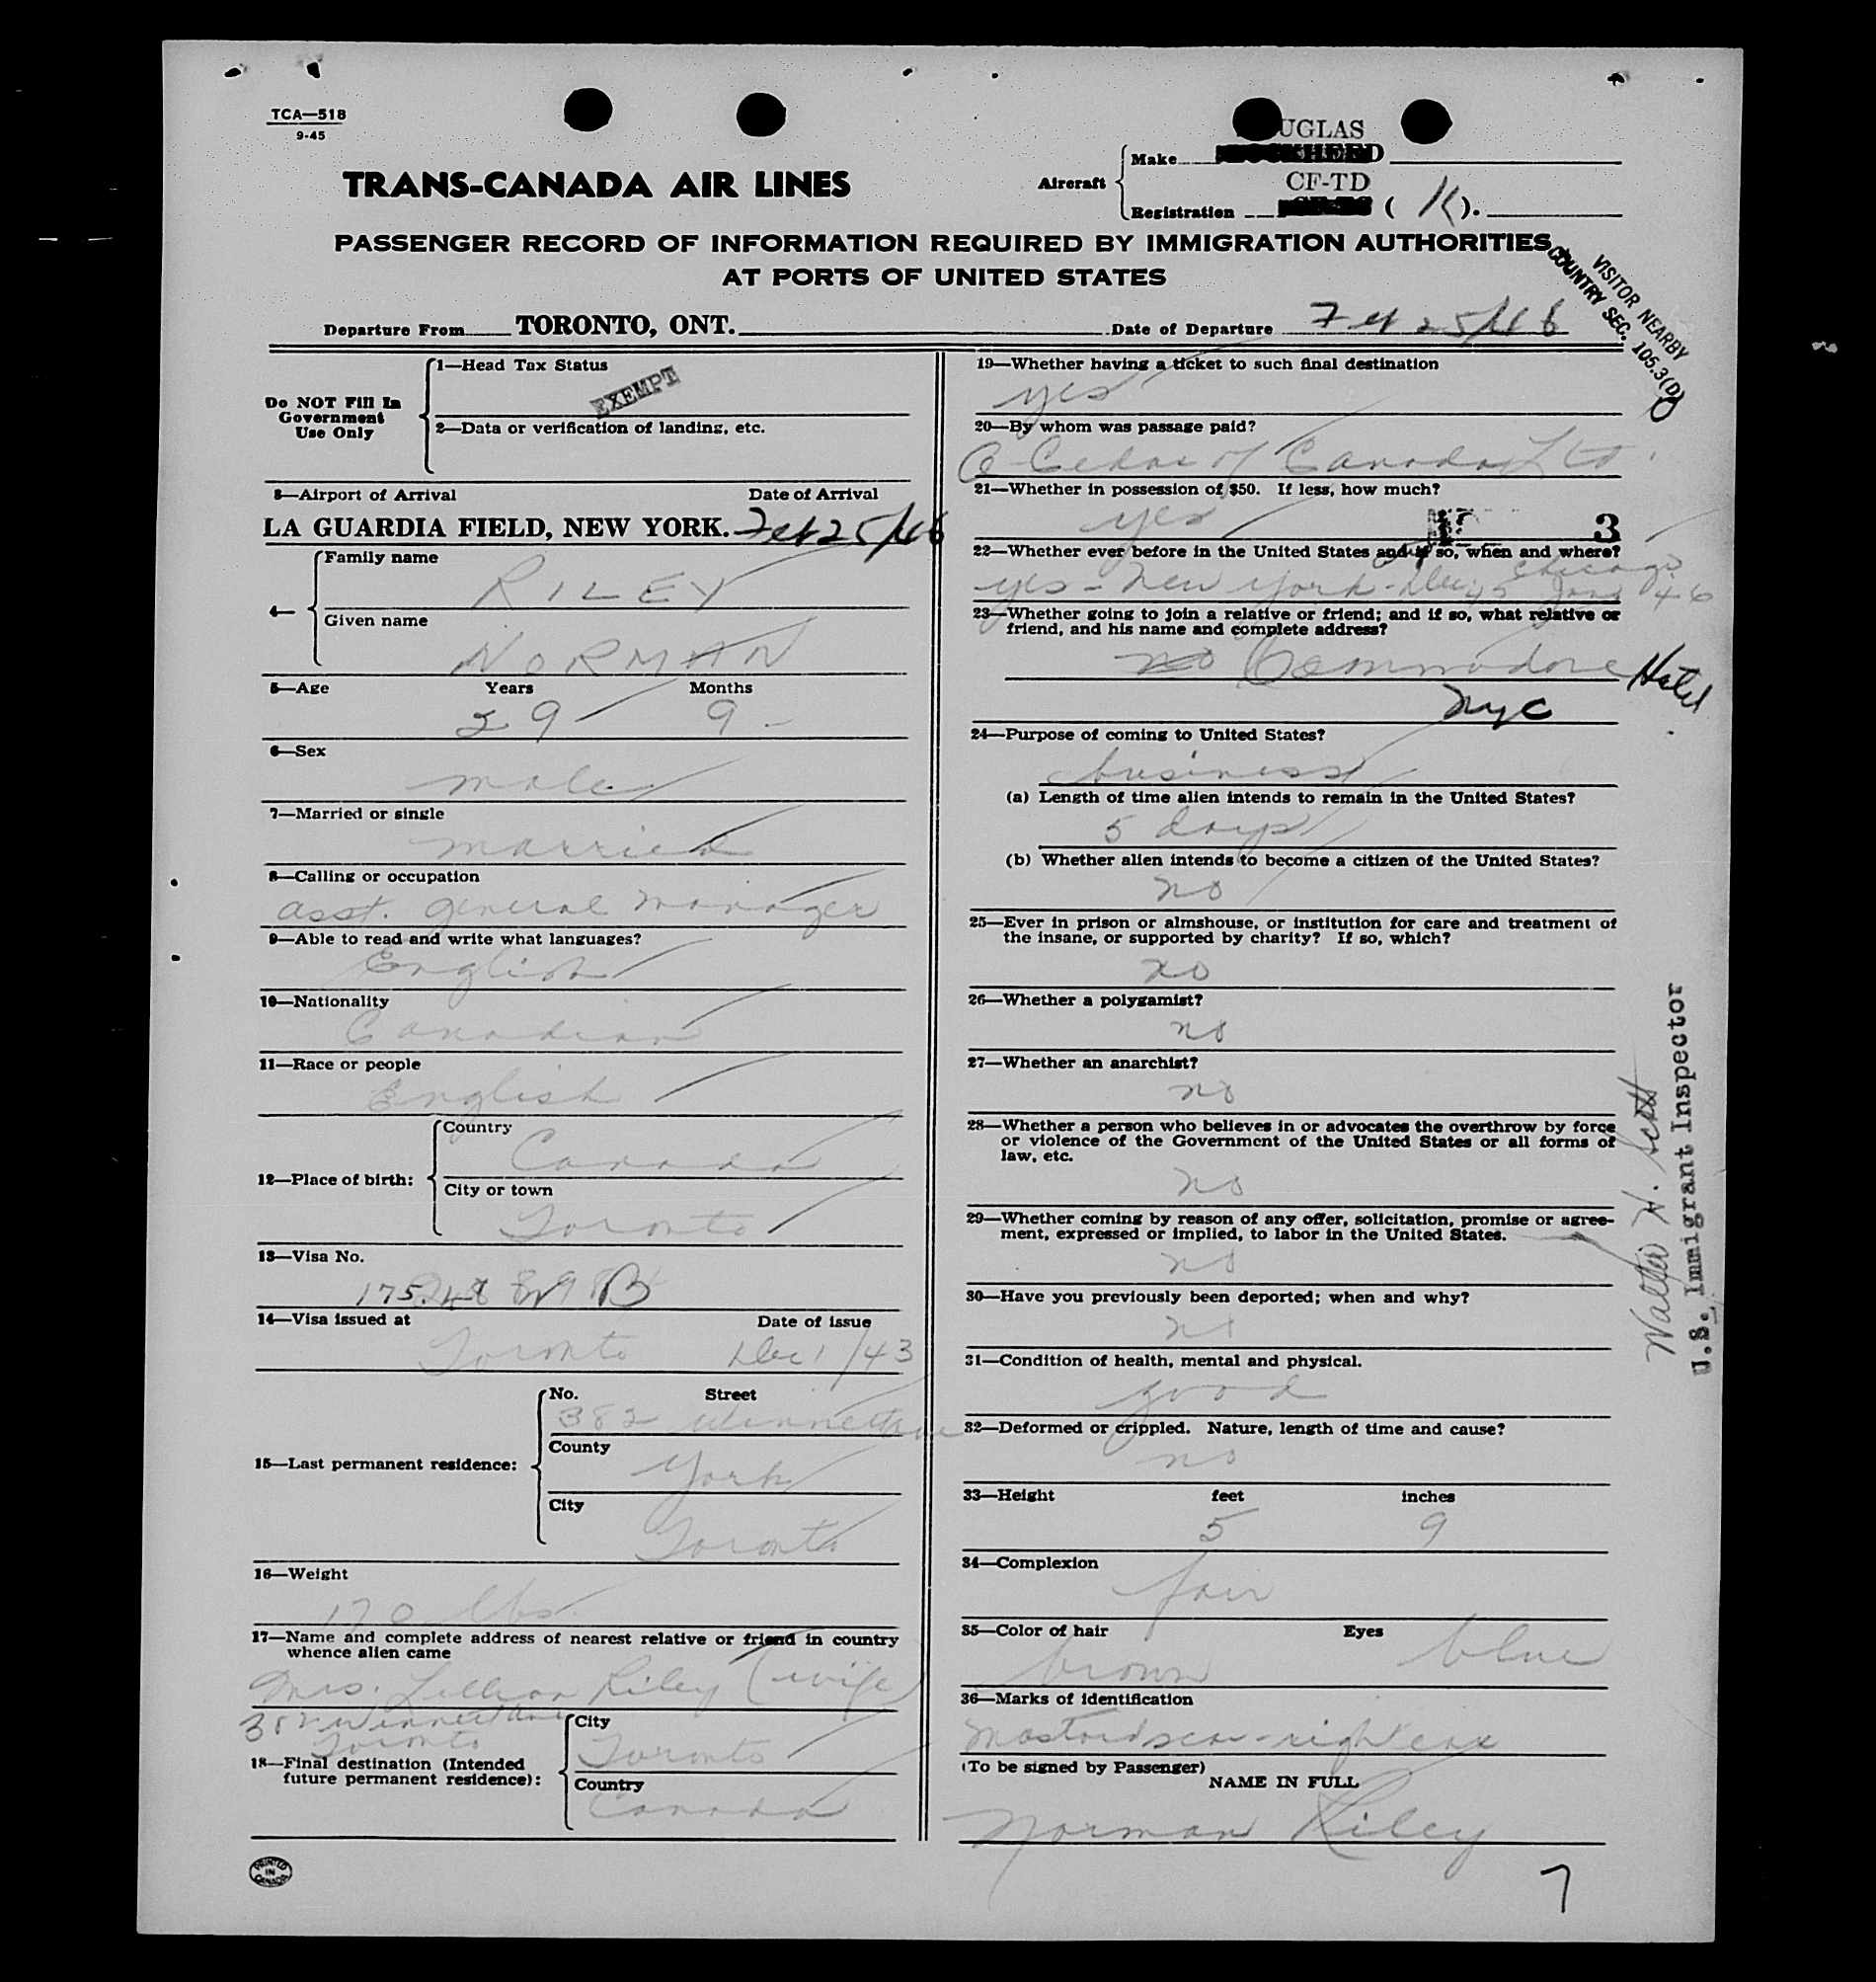 TCA—518
9-45
UGLAS
Aircraft
Make
TRANS-CANADA AIR LINES
CF-TD
Registration ( K ).
PASSENGER RECORD OF INFORMATION REQUIRED BY IMMIGRATION AUTHORITIES
AT PORTS OF UNITED STATES
VISITOR NEARBY
COUNTRY SEC. 105.3(D)
Departure From TORONTO, ONT. Date of Departure Feb 25/46
Do NOT Fill In
Government
Use Only
1—Head Tax Status
EXEMPT
2—Data or verification of landing, etc.
3—Airport of Arrival Date of Arrival
LA GUARDIA FIELD, NEW YORK. Feb 25/46
4—
Family name
RILEY
Given name
NORMAN
5—Age Years Months
29 9
6—Sex
male
7—Married or single
married
8—Calling or occupation
asst. general manager
9—Able to read and write what languages?
English
10—Nationality
Canadian
11—Race or people
English
12—Place of birth:
Country
Canada
City or town
Toronto
13—Visa No.
14—Visa issued at Date of issue
Toronto Dec 1/43
15—Last permanent residence:
No. Street
382 Winnett Ave
County
York
City
Toronto
16—Weight
170 lbs.
17—Name and complete address of nearest relative or friend in country
whence alien came
Mrs. Lillian Riley (wife)
382 Winnett Ave
Toronto
18—Final destination (Intended
future permanent residence):
City
Toronto
Country
Canada
PRINTED
IN
CANADA
19—Whether having a ticket to such final destination
yes
20—By whom was passage paid?
O-Cedar of Canada Ltd.
21—Whether in possession of $50. If less, how much?
yes
3
22—Whether ever before in the United States and if so, when and where?
Chicago
yes - New York - Dec 45 Jan 46
23—Whether going to join a relative or friend; and if so, what relative or
friend, and his name and complete address?
no Commodore Hotel
NYC
24—Purpose of coming to United States?
business
(a) Length of time alien intends to remain in the United States?
5 days
(b) Whether alien intends to become a citizen of the United States?
no
25—Ever in prison or almshouse, or institution for care and treatment of
the insane, or supported by charity? If so, which?
no
26—Whether a polygamist?
no
27—Whether an anarchist?
no
28—Whether a person who believes in or advocates the overthrow by force
or violence of the Government of the United States or all forms of
law, etc.
no
29—Whether coming by reason of any offer, solicitation, promise or agree-
ment, expressed or implied, to labor in the United States.
no
30—Have you previously been deported; when and why?
no
31—Condition of health, mental and physical.
good
32—Deformed or crippled. Nature, length of time and cause?
no
33—Height feet inches
5 9
34—Complexion
fair
35—Color of hair Eyes
brown blue
36—Marks of identification
Mastoid scar - right ear
(To be signed by Passenger)
NAME IN FULL
Norman Riley
7
Walter H. Scott
U.S. Immigrant Inspector